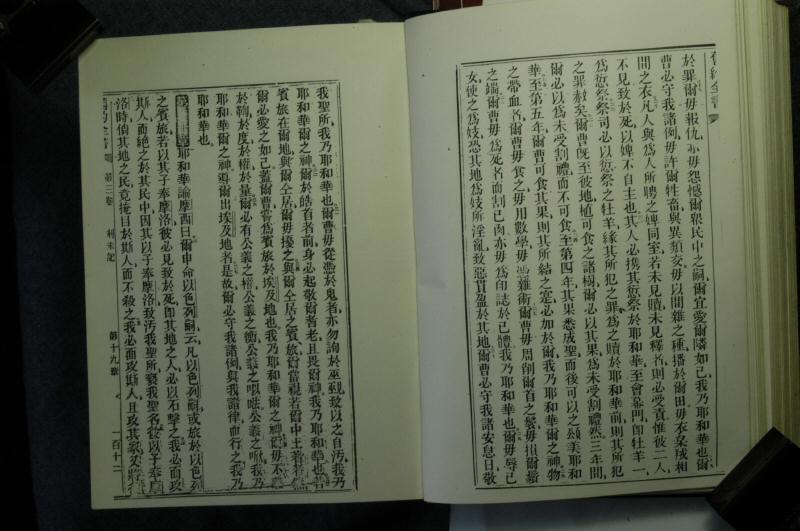 舊約全書
於罪爾毋報仇亦毋怨憾爾眾民中之嗣爾宜愛爾隣如己我乃耶和華也爾
曹必守我諸例毋許爾牲畜與異類交毋以間雜之種播於爾田毋衣枲絨相
間之衣凡人與為人所聘之婢同室若未見贖未見釋者則必受責惟彼二人
不見致於死以婢不自主也其人必携其愆祭於耶和華至會幕門即牡羊一
為愆祭祭司必以愆祭之牡羊緣其所犯之罪為之贖於耶和華前則其所犯
之罪赦矣爾曹既至彼地植可食之諸樹爾必以其果為未受割禮然三年間
爾必以為未受割禮而不可食至第四年其果悉成聖而後可以之頌美耶和
華至第五年爾曹可食其果則其所結之寔必加於爾我乃耶和華爾之神物
之帶血者爾曹毋食之毋用數學毋馮雜術爾曹毋周削爾首之髮毋損爾鬚
之端爾曹毋為死者而割己肉亦毋為印誌於己體我乃耶和華也爾毋辱己
女使之為妓恐其地為妓所淫亂致惡貫盈於其地爾曹必守我諸安息日敬
我聖所我乃耶和華也爾曹毋從憑於鬼者亦勿詢於巫覡致以之自汚我乃
耶和華爾之神爾於皓首者前身必起敬爾耆老且畏爾神我乃耶和華也若
賓旅在爾地與爾仝居爾毋擾之與爾仝居之賓旅爾當視若爾中土著者
爾必愛之如己蓋爾曹嘗為賓旅於埃及地也我乃耶和華爾之神爾毋不義
於鞫於度於權於量爾必有公義之權公義之衡公義之㗒公義之㖠我乃
耶和華爾之神導爾出埃及地者是故爾必守我諸例與我諸律而行之我乃
耶和華也
耶和華諭摩西曰爾申命以色列嗣云凡以色列嗣或旅於以色列
之賓旅若以其子奉摩洛彼必見致於死即其地之人必以石擊之我必面攻
斯人而絕之於其民中因其以子奉摩洛致汚我聖所褻我聖名若以子奉摩
洛時儻其地之民竟掩目於斯人而不殺之我必面攻斯人且攻其家
舊約全書 第三卷 利未記 第十九章 一百十二